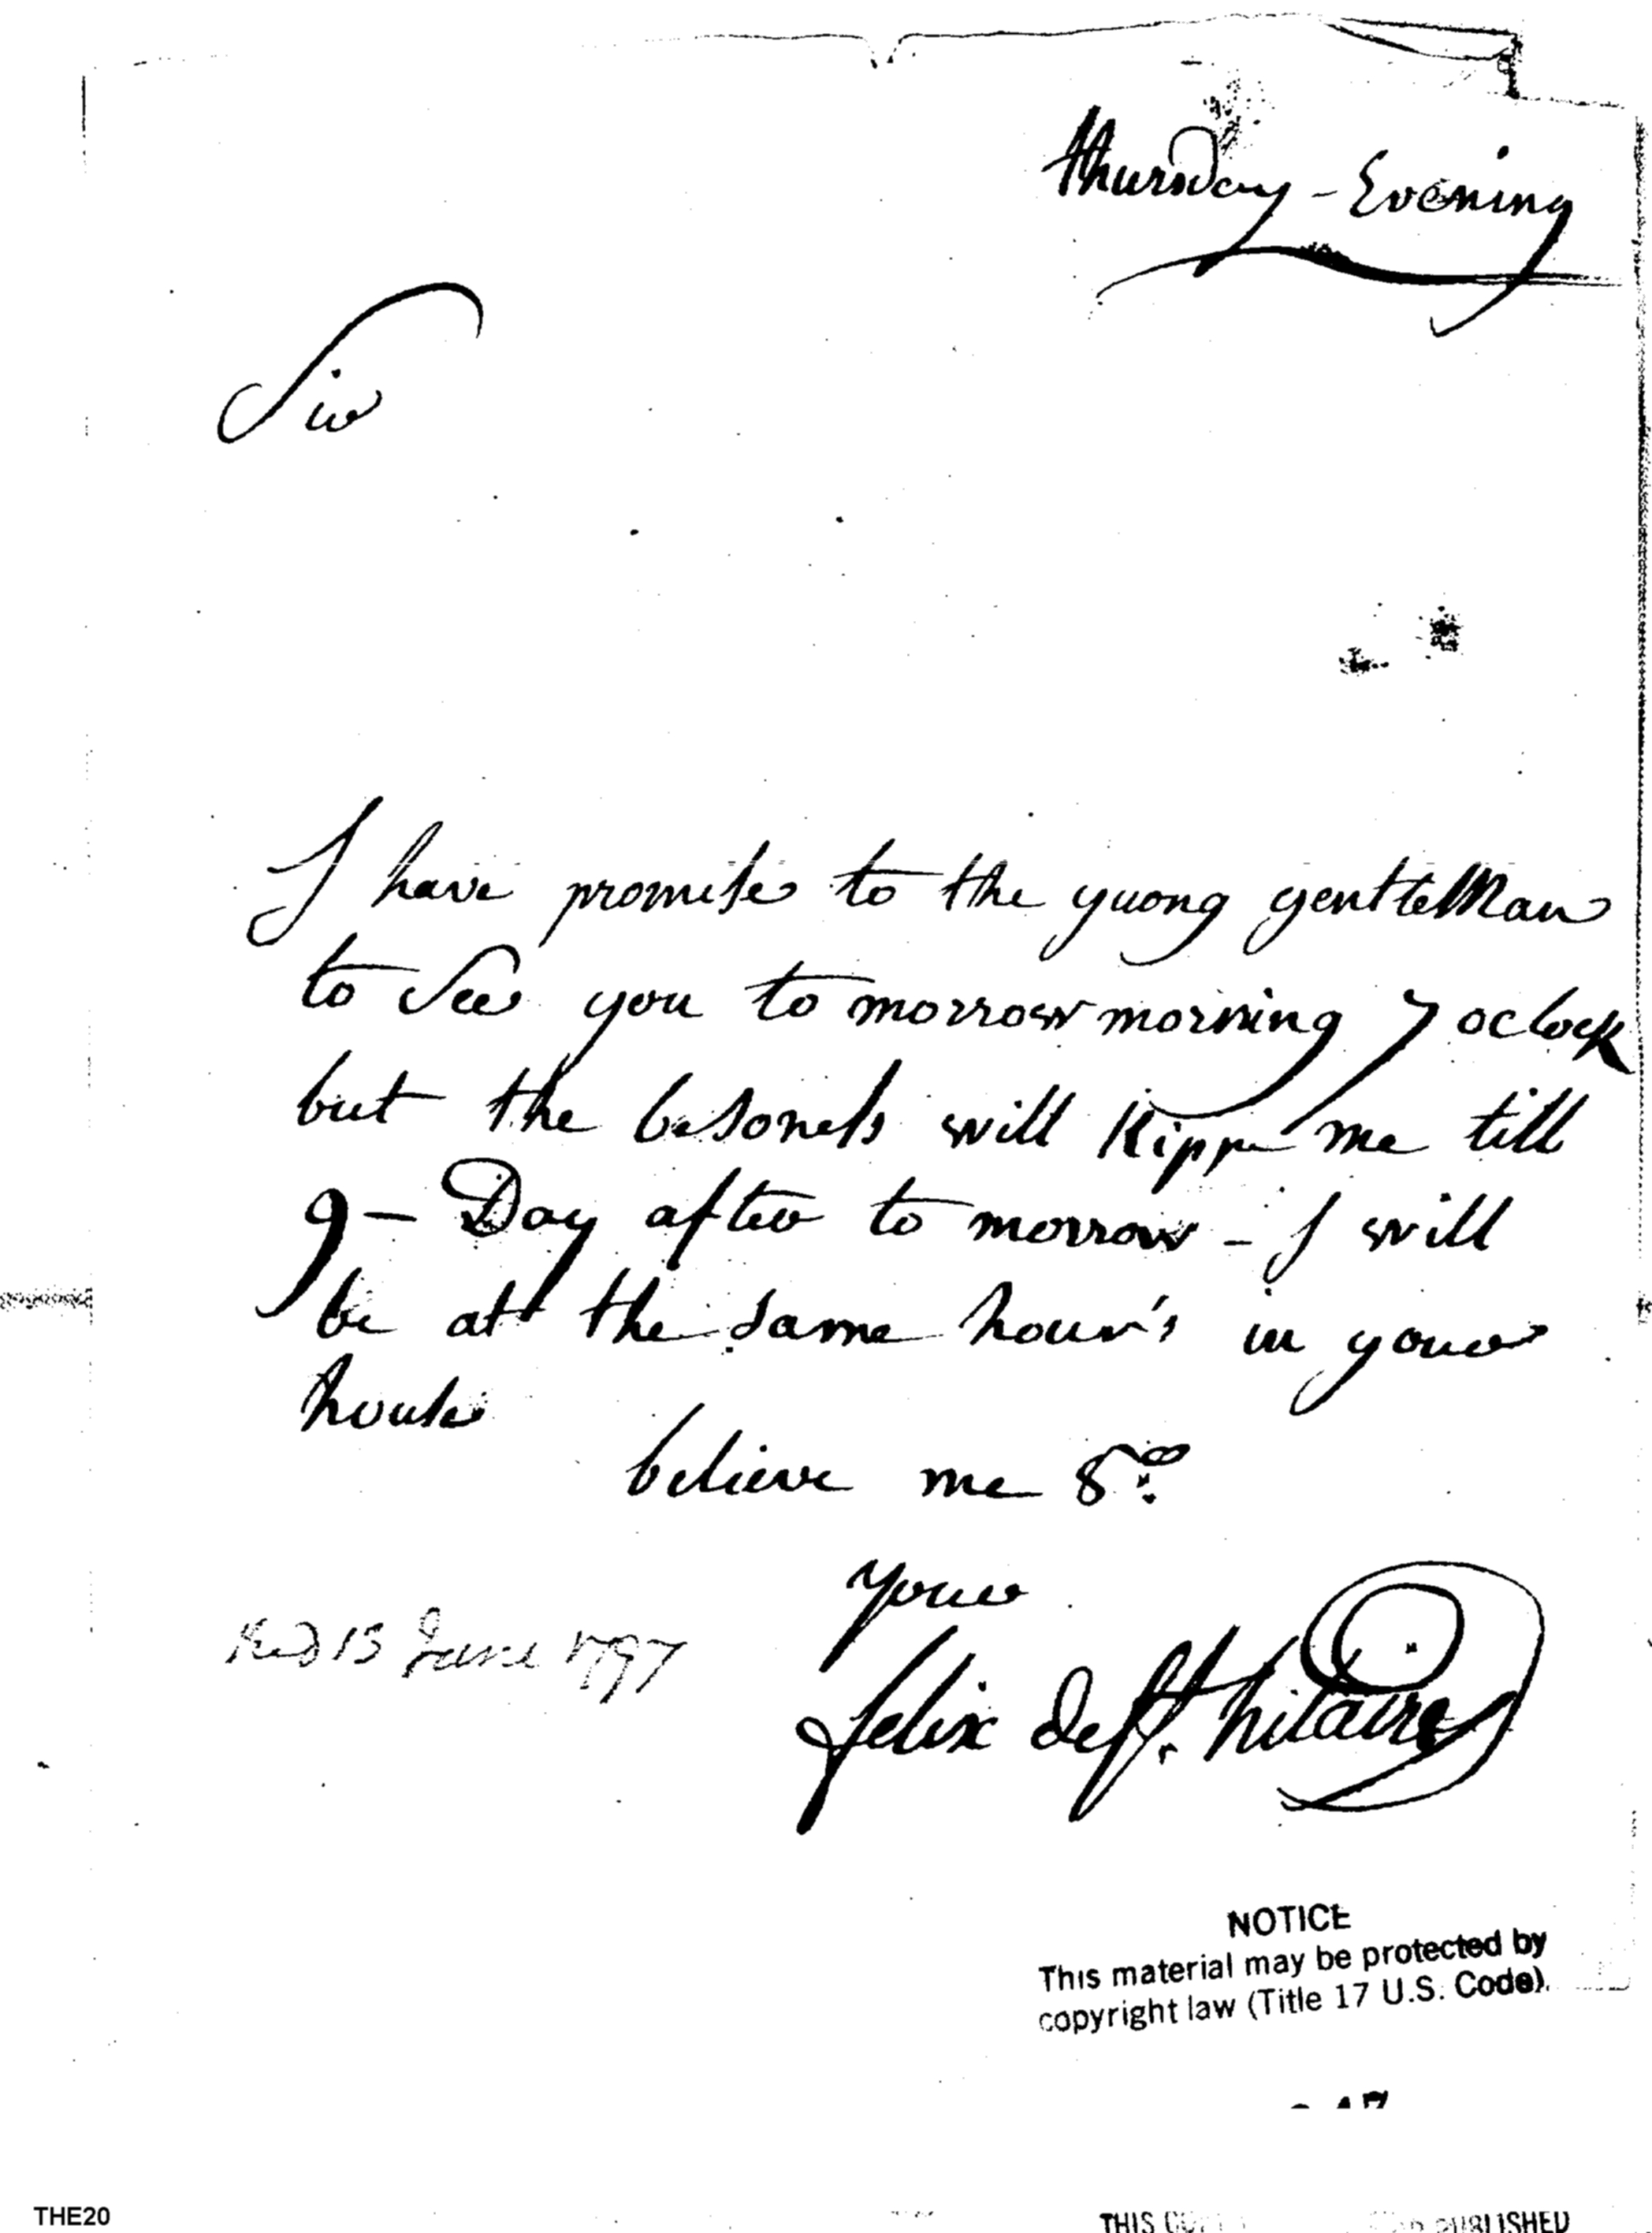 thursday - Evening
Sir
I have promise to the yuong gentleman
to See you to morrow morning 7 oclock
but the will Kipp me till
9 - Day after to morrow - I will
be at the same hour's in your
house
believe me &ca
your
felix de St. hilaire
Recd 13 June 1797
NOTICE
This material may be protected by
copyright law (Title 17 U.S. Code).
THE20
THIS PUBLISHED